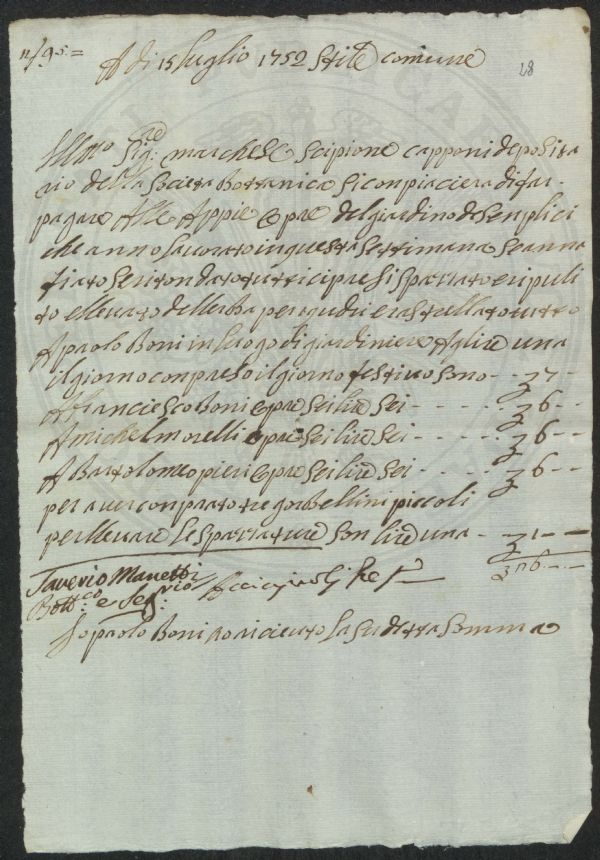 n/ 95 =
A di 15 luglio 1752 Stile comune
28
Illmo Sigre: marchese Scipione capponi deposita
rio della Societa Bottanica Si conpiaciera di far
pagare Alle Appie opre del giardino de Senplici
che anno lavorato in questa Settimana Se anna
fiato Se ritondato tutti ci presi Spazzato e ripuli
to e llevato dellerba per e gudri e rastrellato tutto
A paolo Boni in luogo di giardiniere A lire una
il giorno conpreso il giorno festivo Sono - - 7 -
A franciesco Boni opre Sei lire Sei - - - - - 6 -
A michel morelli opre Sei lire Sei - - - - 6 - -
A Bartolomeo pieri opre Sei lire Sei - - - - 6 - -
per aver conprato tre gorbellini piccoli
per llevare le Spazzature Son lire una - - 1 - -
26 - -
Saverio Manetti
Bottco: e Segrio:
Io paolo Boni o riceuto la Sudetta Somma